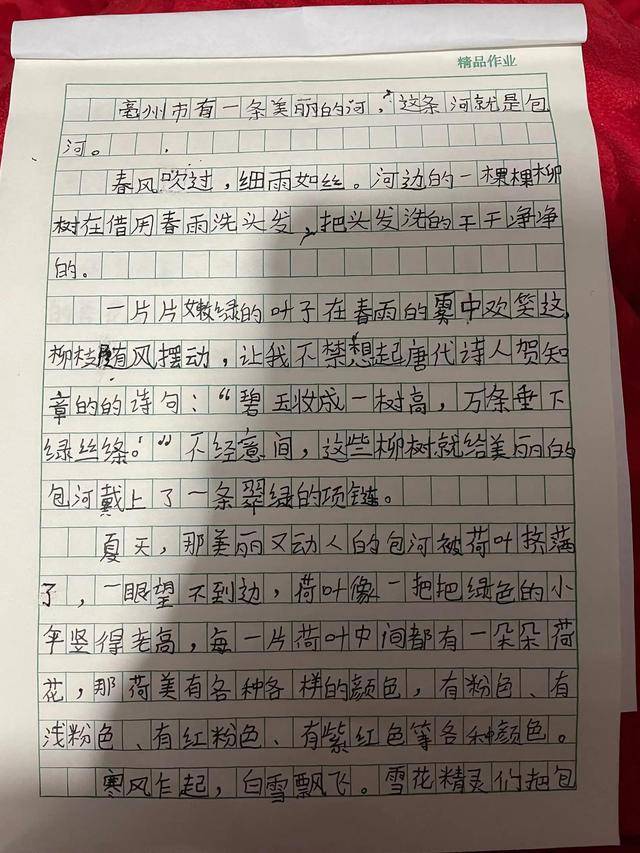 精品作业
亳州市有一条美丽的河，这条河就是包
河。
春风吹过，细雨如丝。河边的一棵棵柳
树在借用春雨洗头发，把头发洗的干干净净
的。
一片片嫩绿的叶子在春雨的雾中欢笑这，
柳枝随风摆动，让我不禁想起唐代诗人贺知
章的的诗句：“碧玉妆成一树高，万条垂下
绿丝绦。”不经意间，这些柳树就给美丽的
包河戴上了一条翠绿的项链。
夏天，那美丽又动人的包河被荷叶挤满
了，一眼望不到边，荷叶像一把把绿色的小
伞竖得老高，每一片荷叶中间都有一朵朵荷
花，那荷美有各种各样的颜色，有粉色、有
浅粉色、有红粉色、有紫红色等各种颜色。
寒风乍起，白雪飘飞。雪花精灵们把包